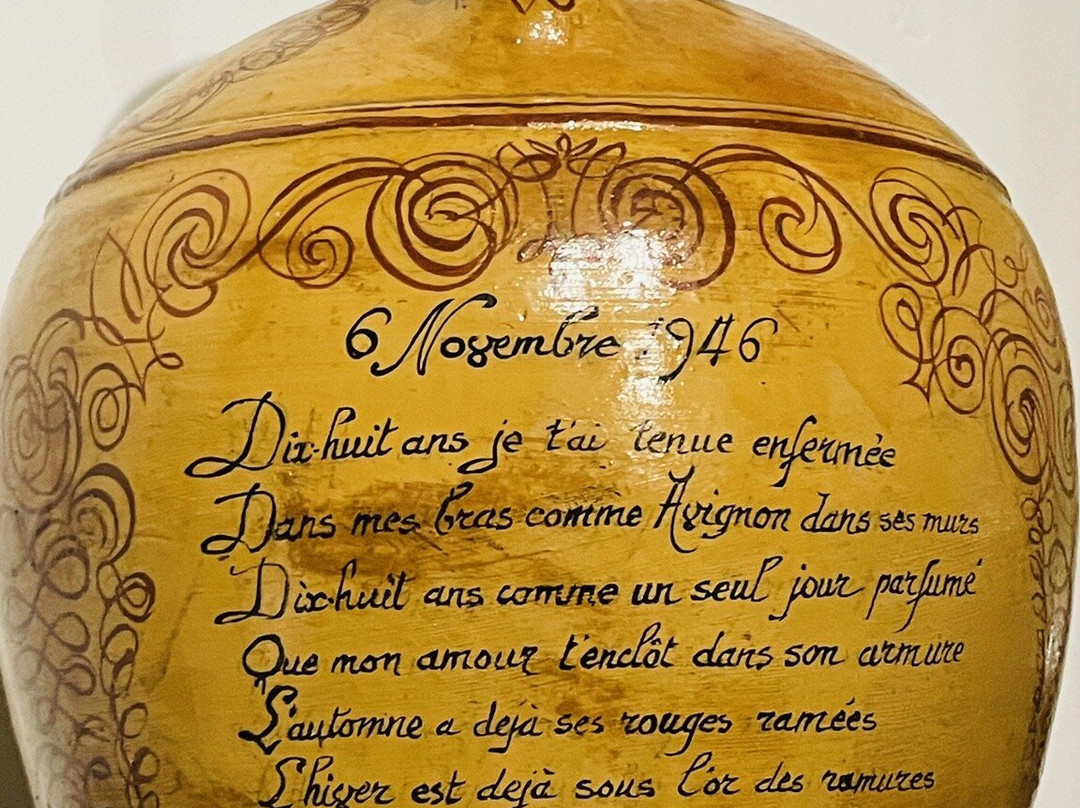 6 Novembre 1946
Dix-huit ans je t'ai tenue enfermée
Dans mes bras comme Avignon dans ses murs
Dix-huit ans comme un seul jour parfumé
Que mon amour t'enclôt dans son armure
L'automne a dejà ses rouges ramées
L'hiver est dejà sous l'or des ramures